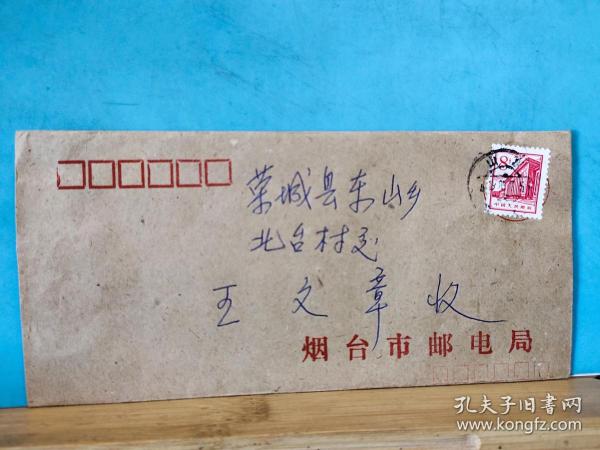 荣城县东山乡
北台村交
王文章收
烟台市邮电局
8
中国人民邮政
孔夫子旧书网
www.kongfz.com